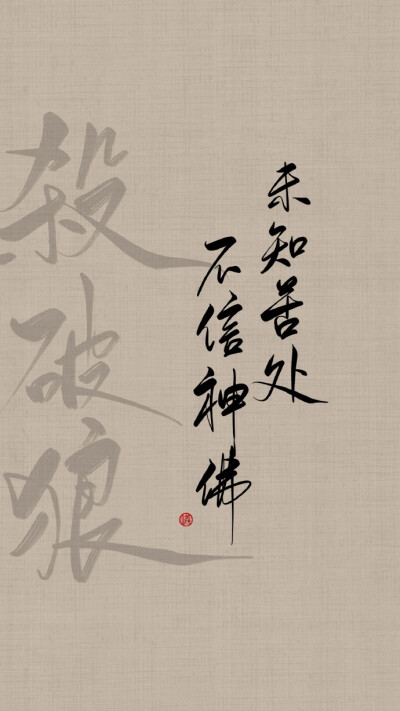 未知苦处
不信神佛
殺破狼